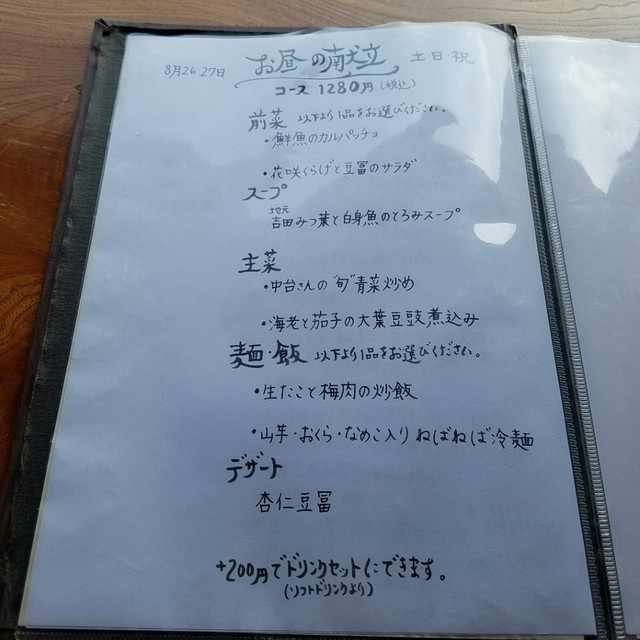 8月26・27日 お昼の献立 土日祝
コース 1280円(税込)
前菜 以下より1品をお選びください。
・鮮魚のカルパッチョ
・花咲くらげと豆冨のサラダ
スープ
地元
吉田みつ葉と白身魚のとろみスープ
主菜
・中台さんの"旬"青菜炒め
・海老と茄子の大葉豆豉煮込み
麺・飯 以下より1品をお選びください。
・生たこと梅肉の炒飯
・山芋・おくら・なめこ入りねばねば冷麺
デザート
杏仁豆冨
+200円でドリンクセットにできます。
(ソフトドリンクより)